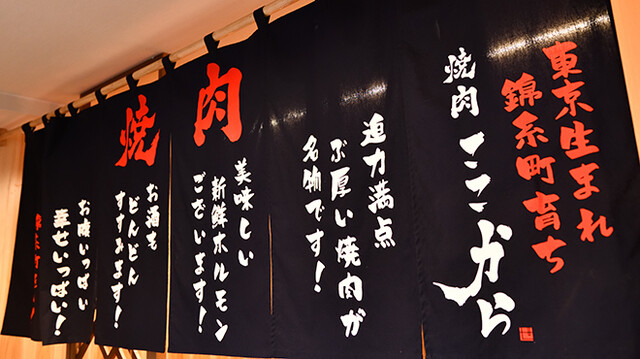 東京生まれ
錦糸町育ち
焼肉 ここから
迫力満点
ぶ厚い焼肉が
名物です！
焼肉
美味しい
新鮮ホルモン
ございます！
お酒も
どんどん
すすみます！
お腹いっぱい
幸せいっぱい！